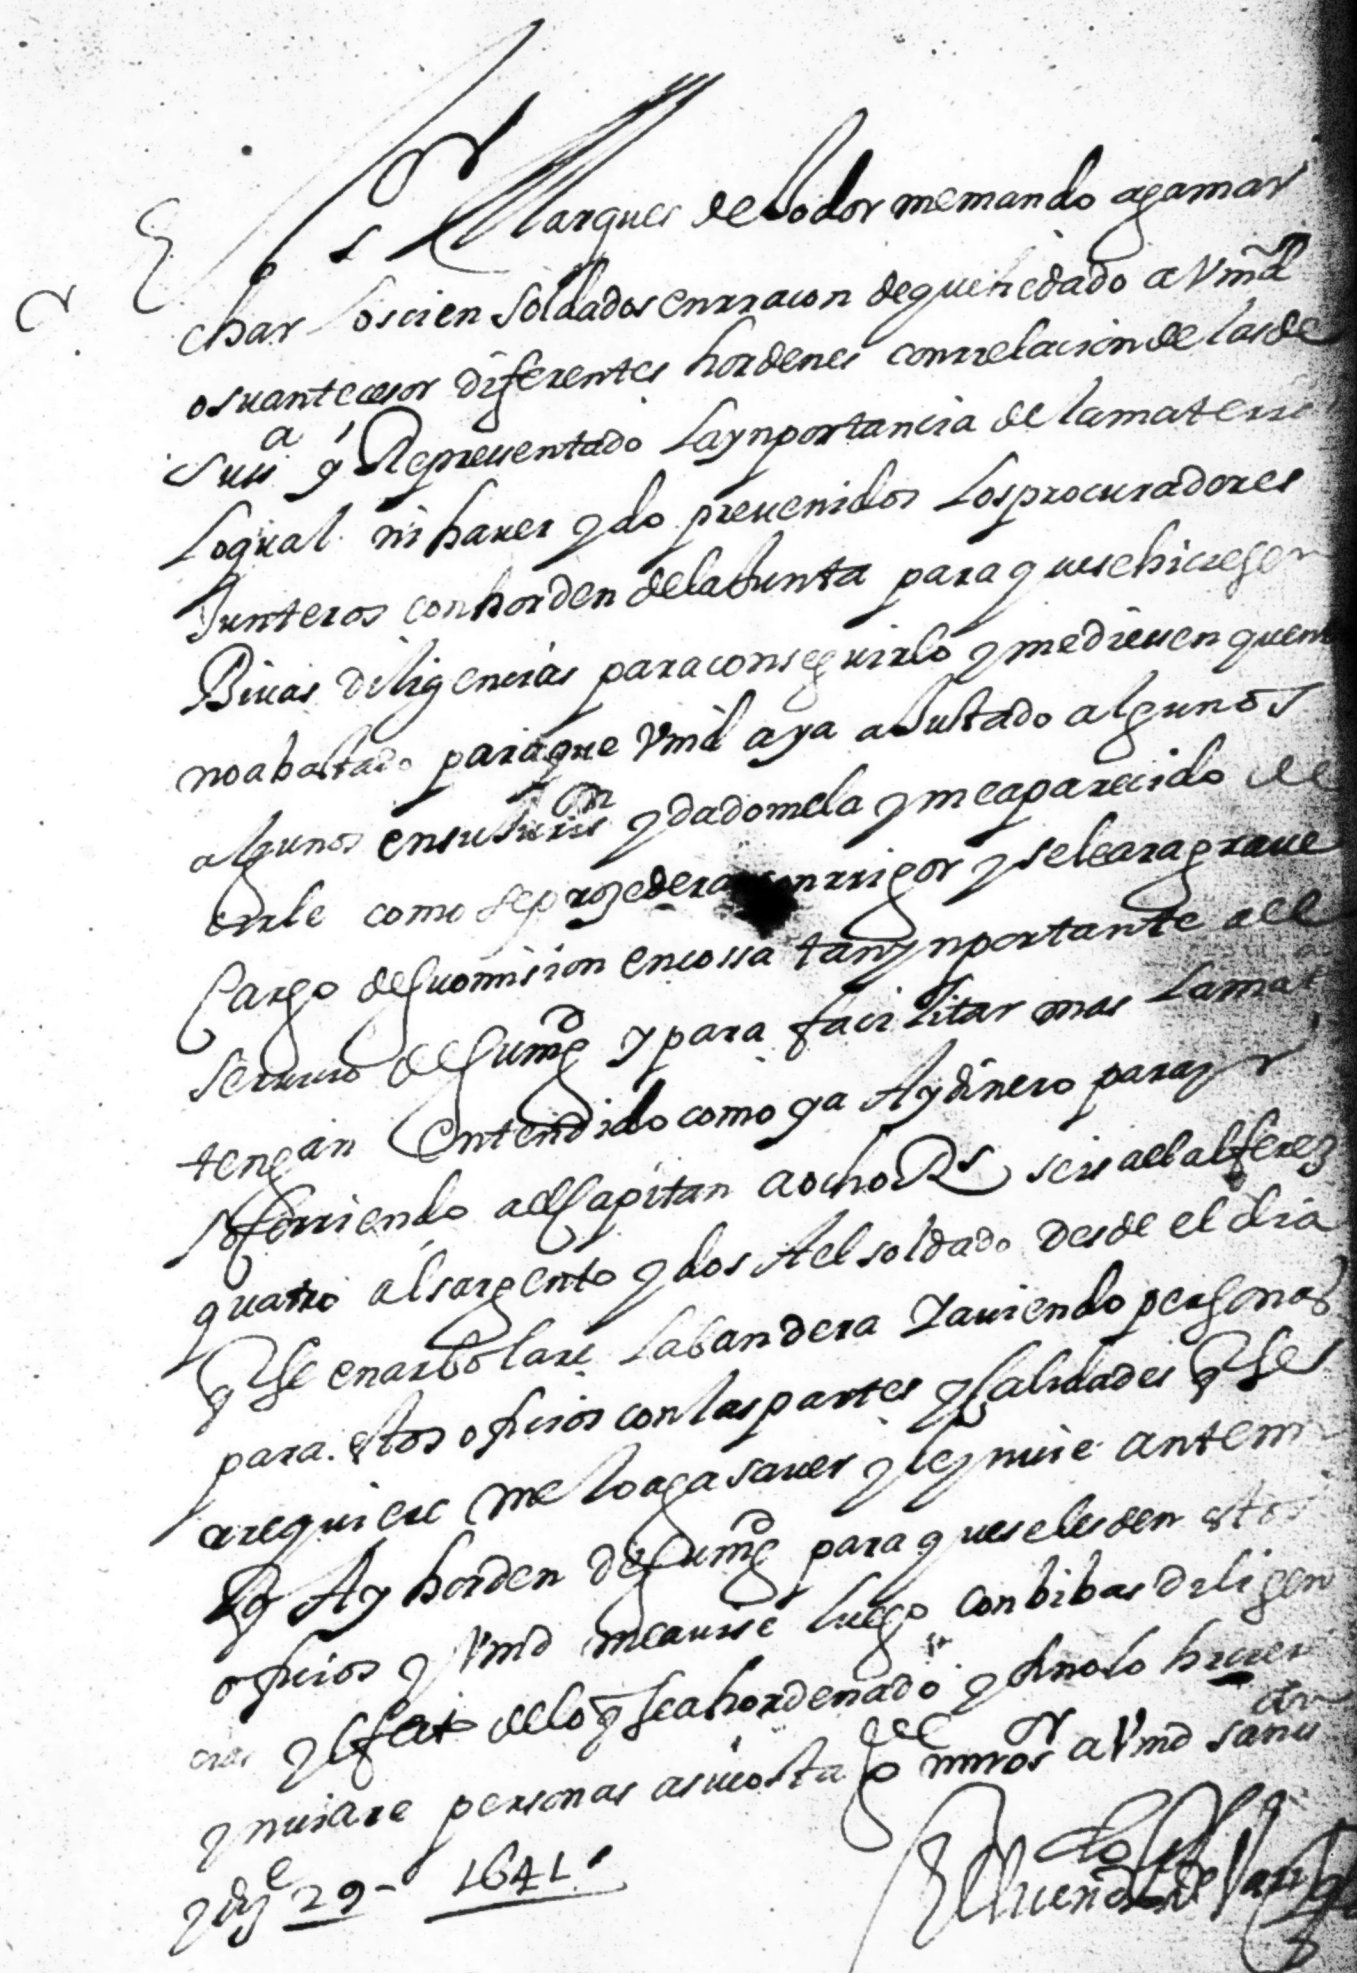 El Marques de Todor me mando aga mar
char los cien soldados en rraçon de que he dado a Vmd
o su antecesor diferentes hordenes con rrelacion de las de
Su sª y Representado la ynportancia de la materia
lo qual ni haver ydo prevenidos los procuradores
Junteros con horden de la Junta para que se hiciesen
Bivas diligencias para conseguirlo y me diesen quenta
no a bastado para que Vmd aya aJustado algunos
algunos en su Juron y dadomela y me a parecido de
cirle como se prozedera con rrigor y se le ara grave
Cargo de Su omision en cossa tan ynportante a el
servicio de Su mgd y para facilitar mas la mat
tengan Entendido como ya Ay dinero para yr
socorriendo a el Capitan a ocho Rs seis a el alferez
quatro al sargento y dos A el soldado desde el dia
q Se enarbolare la bandera Y aviendo personas
para estos oficios con las partes y Calidades q Se
a requiere me lo aga saver y le ynvie ante mi
Pq Ay horden de Su mgd para que se les den estos
oficios y Vmd me avise luego con bibas diligen
cias y Efeto de lo q Se a hordenado y Si no lo hiciere
ynviare personas a su costa gde nro sr a Vmd
y dize 29 - 1641